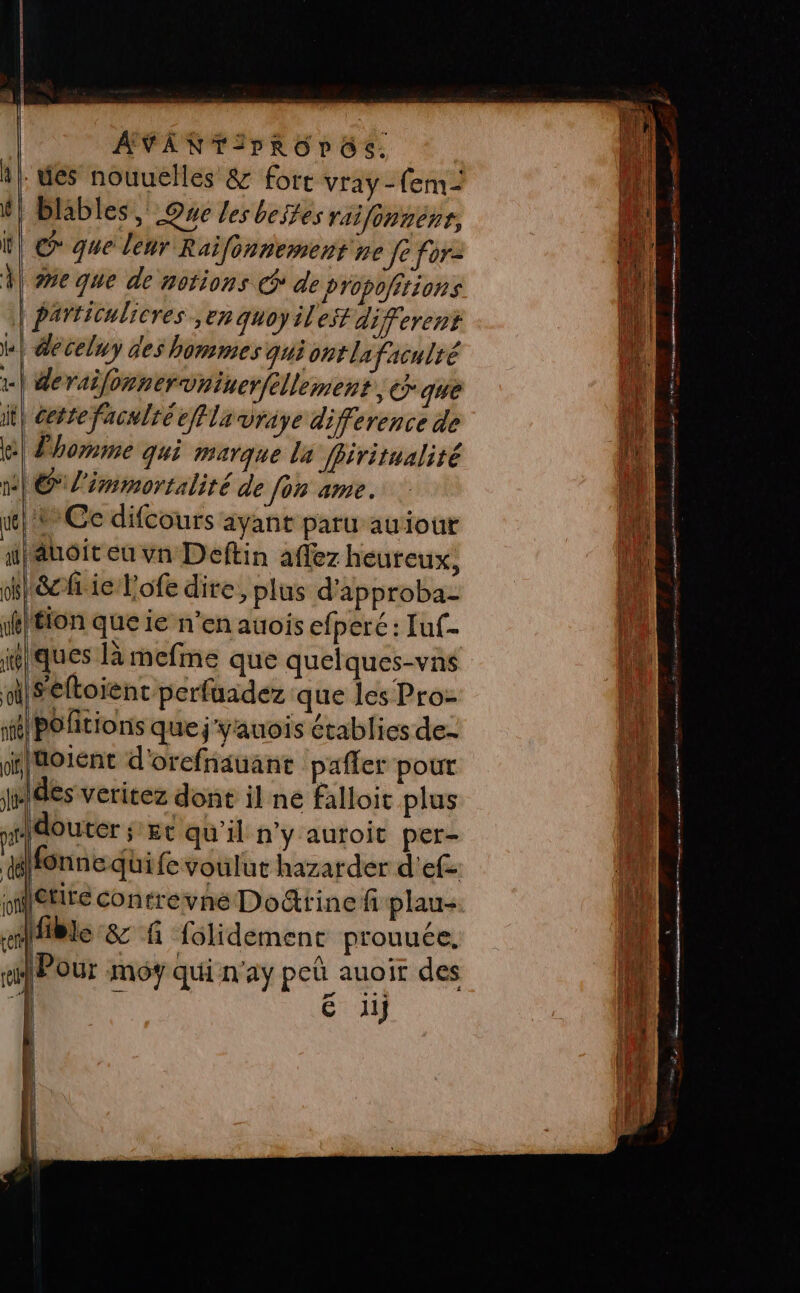 AVANT-PROPOS.
ues nouuelles & fort vray-ſem-
blables, Que les beſtes raiſonnent,
& que leur Raiſonnement ne ſe for-
me que de notions & de propoſitions
particulieres, en quoy il eſt different
de celuy des hommes qui ont la faculté
de raiſonner vniuerſellement, & que
cette faculté eſt la vraye difference de
l'homme qui marque la ſpiritualité
& l'immortalité de ſon ame.
Ce diſcours ayant paru au iour
auoit eu vn Deſtin aſſez heureux,
& ſi ie l'oſe dire, plus d'approba-
tion que ie n'en auois eſperé: Iuſ-
ques là meſme que quelques-vns
s'eſtoient perſuadez que les Pro-
poſitions que j'y auois établies de-
uoient d'oreſnauant paſſer pour
des veritez dont il ne falloit plus
douter; Et qu'il n'y auroit per-
ſonne qui ſe voulut hazarder d'eſ-
crire contre vne Doctrine ſi plau-
ſible & ſi ſolidement prouuée,
Pour moy qui n'ay peû auoir des
é iij